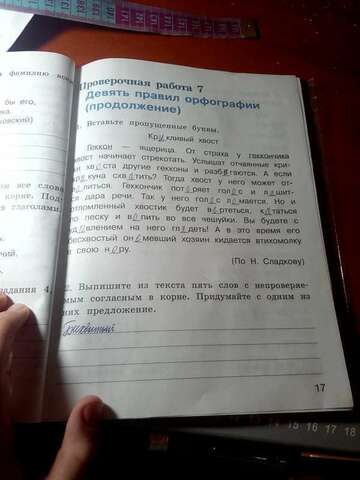 фамилию
бы его,
ка.
ковский)
все слова
корне. Под-
глаголами.
чий,
задания 4,
Проверочная работа 7
Девять правил орфографии
(продолжение)
Вставьте пропущенные буквы.
Кр кливый хвост
Геккон — ящерица. От страха у геккончика
хвост начинает стрекотать. Услышат отчаянные кри-
ки хв ста другие гекконы и разб гаются. А если
кара куна схв тить? Тогда хвост у него может от-
в литься. Геккончик пот ряет гол с и лишит-
ся дара речи. Так у него гол с п мается. Но и
отломленный хвостик будет в ртеться, к таться
по песку и в пить во все чешуйки. Вы будете с
уд влением на него гл деть! А в это время его
бесхвостый он мевший хозяин кидается втихомолку
в свою н ру.
(По Н. Сладкову)
2. Выпишите из текста пять слов с непроверяе-
мым согласным в корне. Придумайте с одним из
них предложение.
17
14 15 16 17 18